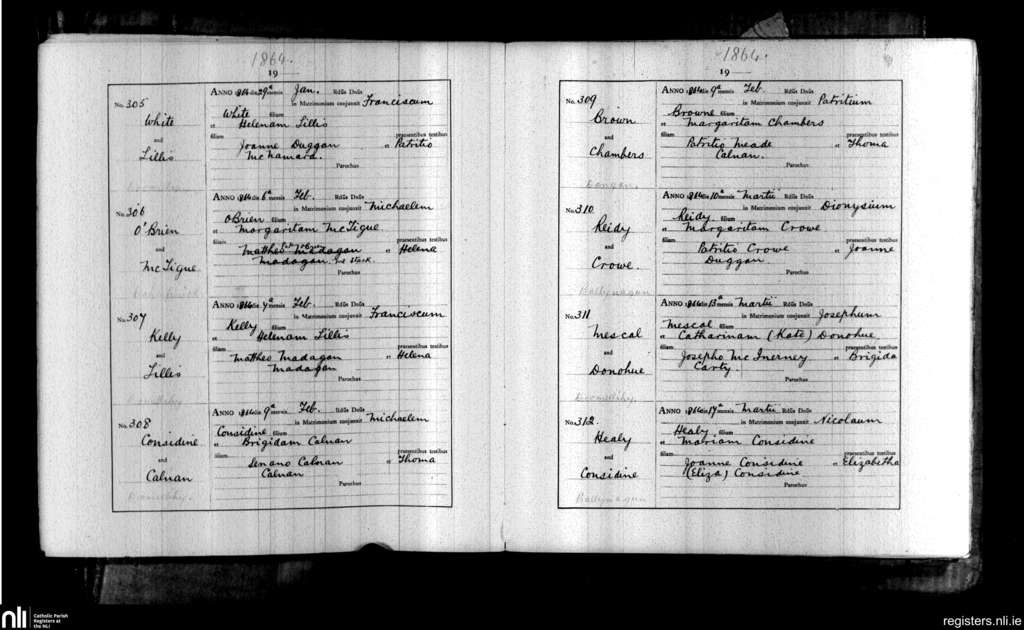 1864.
19 —
No. 305
White
and
Lillis
ANNO 1864 die 29ª mensis Jan. Rdūs Dnūs
in Matrimonium conjunxit Franciscum
White filium
et Helenam Lillis
filiam praesentibus testibus
Joanne Duggan et Patritio
McNamara.
Parochus
No. 306
O'Brien
and
McTigue
ANNO 1864 die 6ª mensis Feb. Rdūs Dnūs
in Matrimonium conjunxit Michaelem
OBrien filium
et Margaritam McTigue
filiam praesentibus testibus
Mattheo Madagan et Helena
Madagan.
Parochus
No. 307
Kelly
and
Lillis
ANNO 1864 die 7ª mensis Feb. Rdūs Dnūs
in Matrimonium conjunxit Franciscum
Kelly filium
et Helenam Lillis
filiam praesentibus testibus
Mattheo Madagan et Helena
Madagan
Parochus
No. 308
Considine
and
Calnan
ANNO 1864 die 9ª mensis Feb. Rdūs Dnūs
in Matrimonium conjunxit Michaelem
Considine filium
et Brigidam Calnan
filiam praesentibus testibus
Senano Calnan et Thoma
Calnan
Parochus
1864.
19 —
No. 309
Brown
and
Chambers
Dangan.
ANNO 1864 die 9ª mensis Feb. Rdūs Dnūs
in Matrimonium conjunxit Patritium
Browne filium
et Margaritam Chambers
filiam praesentibus testibus
Patritio Meade et Thoma
Calnan.
Parochus
No. 310
Reidy
and
Crowe.
Ballynagun
ANNO 1864 die 10ª mensis Martii Rdūs Dnūs
in Matrimonium conjunxit Dionysium
Reidy filium
et Margaritam Crowe
filiam praesentibus testibus
Patritio Crowe et Joanne
Duggan
Parochus
No. 311
Mescal
and
Donohue
ANNO 1864 die 13ª mensis Martii Rdūs Dnūs
in Matrimonium conjunxit Josephum
Mescal filium
et Catharinam (Kate) Donohue,
filiam praesentibus testibus
Josepho McInerney et Brigida
Carty.
Parochus
No. 312
Healy
and
Considine
Ballynagun
ANNO 1864 die 17ª mensis Martii Rdūs Dnūs
in Matrimonium conjunxit Nicolaum
Healy filium
et Mariam Considine
filiam praesentibus testibus
Joanne Considine et Elizabetha
(Eliza) Considine
Parochus
nli Catholic Parish
Registers at
the NLI
registers.nli.ie